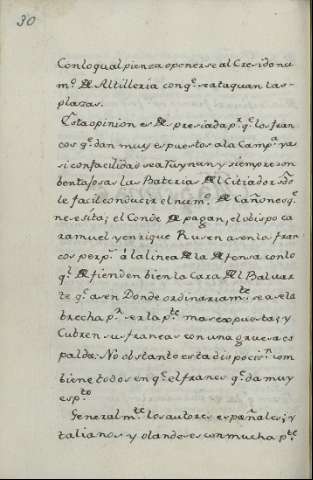 30
Con lo qual pienza oponerse al Cresido nu
m.º de Altilleria con q.e se ataquan las-
plazas.
Esta opinion es despresiada p.r q.e los fran
cos q.e dan muy espuestos a la Camp.a y a
si con facilidad se aRuynan y siempre son
bentajosas las Bateria del Citiador s.do
le facil conducir el num.º de Cañones q.e
nesesita; el Conde de pagan, el obispo ca
ramuel y enrique Rusen asen los fran
cos perp.s â la linea de la defensa con lo
q.l defienden bien la Cara del Baluar
te q.e es en Donde ordinariam.te se ase la
brecha p.r ser la p.te mas expuesta; y
Cubren sus francas con una gruesa es
palda. No obstante esta disposici.n com
biene todos en q.e el franco q.e da muy
esp.to
General m.te los autores españales; y
talianos y olandeses con mucha p.te